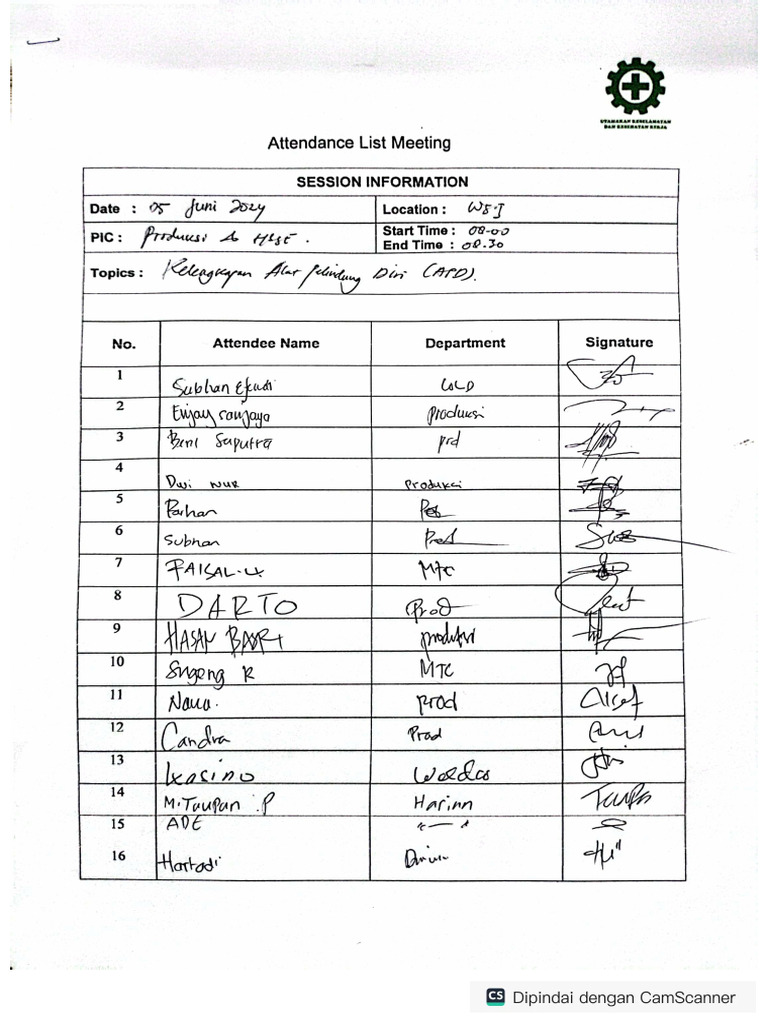 UTAMAKAN KESELAMATAN
DAN KESEHATAN KERJA
Attendance List Meeting
SESSION INFORMATION
Date : 05 Juni 2024 Location : WS-I
PIC : Produksi & HSE . Start Time : 08-00
End Time : 08.30
Topics : Kelengkapan Alat Pelindung Diri (APD).
No. Attendee Name Department Signature
1 Subhan Efendi COLD
2 Enjay sanjaya Produksi
3 Beni Saputra prd
4 Dwi NUR Produksi
5 Parhan
6 Subhan Prod
7 FAISAL MTC
8 DARTO Prod
9 HASAN BASRI produksi
10 Sugeng R MTC
11 Nava. prod
12 Candra Prod
13 Kasino
14 M.Taupan .P Harian Taupan
15 ADE
16 Hartadi
CS Dipindai dengan CamScanner